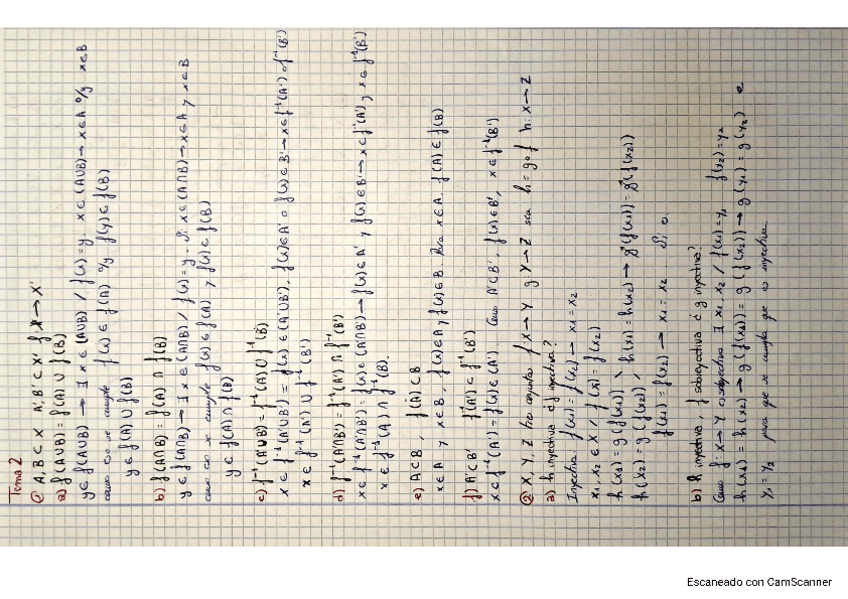 Tema 2
① A, B ⊂ X A', B' ⊂ X' f: X → X'
a) f(A∪B) = f(A) ∪ f(B)
y ∈ f(A∪B) → ∃ x ∈ (A∪B) / f(x) = y. x ∈ (A∪B) → x ∈ A o/y x ∈ B
como se cumple f(x) ∈ f(A) o/y f(y) ∈ f(B)
y ∈ f(A) ∪ f(B)
b) f(A∩B) = f(A) ∩ f(B)
y ∈ f(A∩B) → ∃ x ∈ (A∩B) / f(x) = y. Si x ∈ (A∩B) → x ∈ A y x ∈ B
como se cumple f(x) ∈ f(A) y f(x) ∈ f(B)
y ∈ f(A) ∩ f(B)
c) f⁻¹(A'∪B') = f⁻¹(A') ∪ f⁻¹(B')
x ∈ f⁻¹(A'∪B') = f(x) ∈ (A'∪B'), f(x) ∈ A' o f(x) ∈ B' → x ∈ f⁻¹(A') o f⁻¹(B')
x ∈ f⁻¹(A') ∪ f⁻¹(B')
d) f⁻¹(A'∩B') = f⁻¹(A') ∩ f⁻¹(B')
x ∈ f⁻¹(A'∩B') = f(x) ∈ (A'∩B') → f(x) ∈ A' y f(x) ∈ B' → x ∈ f⁻¹(A') y x ∈ f⁻¹(B')
x ∈ f⁻¹(A) ∩ f⁻¹(B).
e) A ⊂ B, f(A) ⊂ B
x ∈ A y x ∈ B, f(x) ∈ A y f(x) ∈ B. x ∈ A, f(A) ∈ f(B)
f) A' ⊂ B' f⁻¹(A') ⊂ f⁻¹(B')
x ∈ f⁻¹(A') = f(x) ∈ (A') Como A' ⊂ B', f(x) ∈ B', x ∈ f⁻¹(B')
② X, Y, Z tres conjuntos f: X → Y g: Y → Z sea h = g∘f h: X → Z
a) h inyectiva ¿f inyectiva?
Inyectiva f(x₁) = f(x₂) → x₁ = x₂
x₁, x₂ ∈ X / f(x₁) = f(x₂)
h(x₁) = g(f(x₁)) \ h(x₁) = h(x₂) → g(f(x₁)) = g(f(x₂))
h(x₂) = g(f(x₂)) /
f(x₁) = f(x₂) → x₁ = x₂ Sí, o.
b) h inyectiva, f sobreyectiva ¿g inyectiva?
Como f: X → Y es sobreyectiva ∃ x₁, x₂ / f(x₁) = y₁ f(x₂) = y₂
h(x₁) = h(x₂) → g(f(x₁)) = g(f(x₂)) → g(y₁) = g(y₂) e
y₁ = y₂ para que se cumpla que es inyectiva.
Escaneado con CamScanner